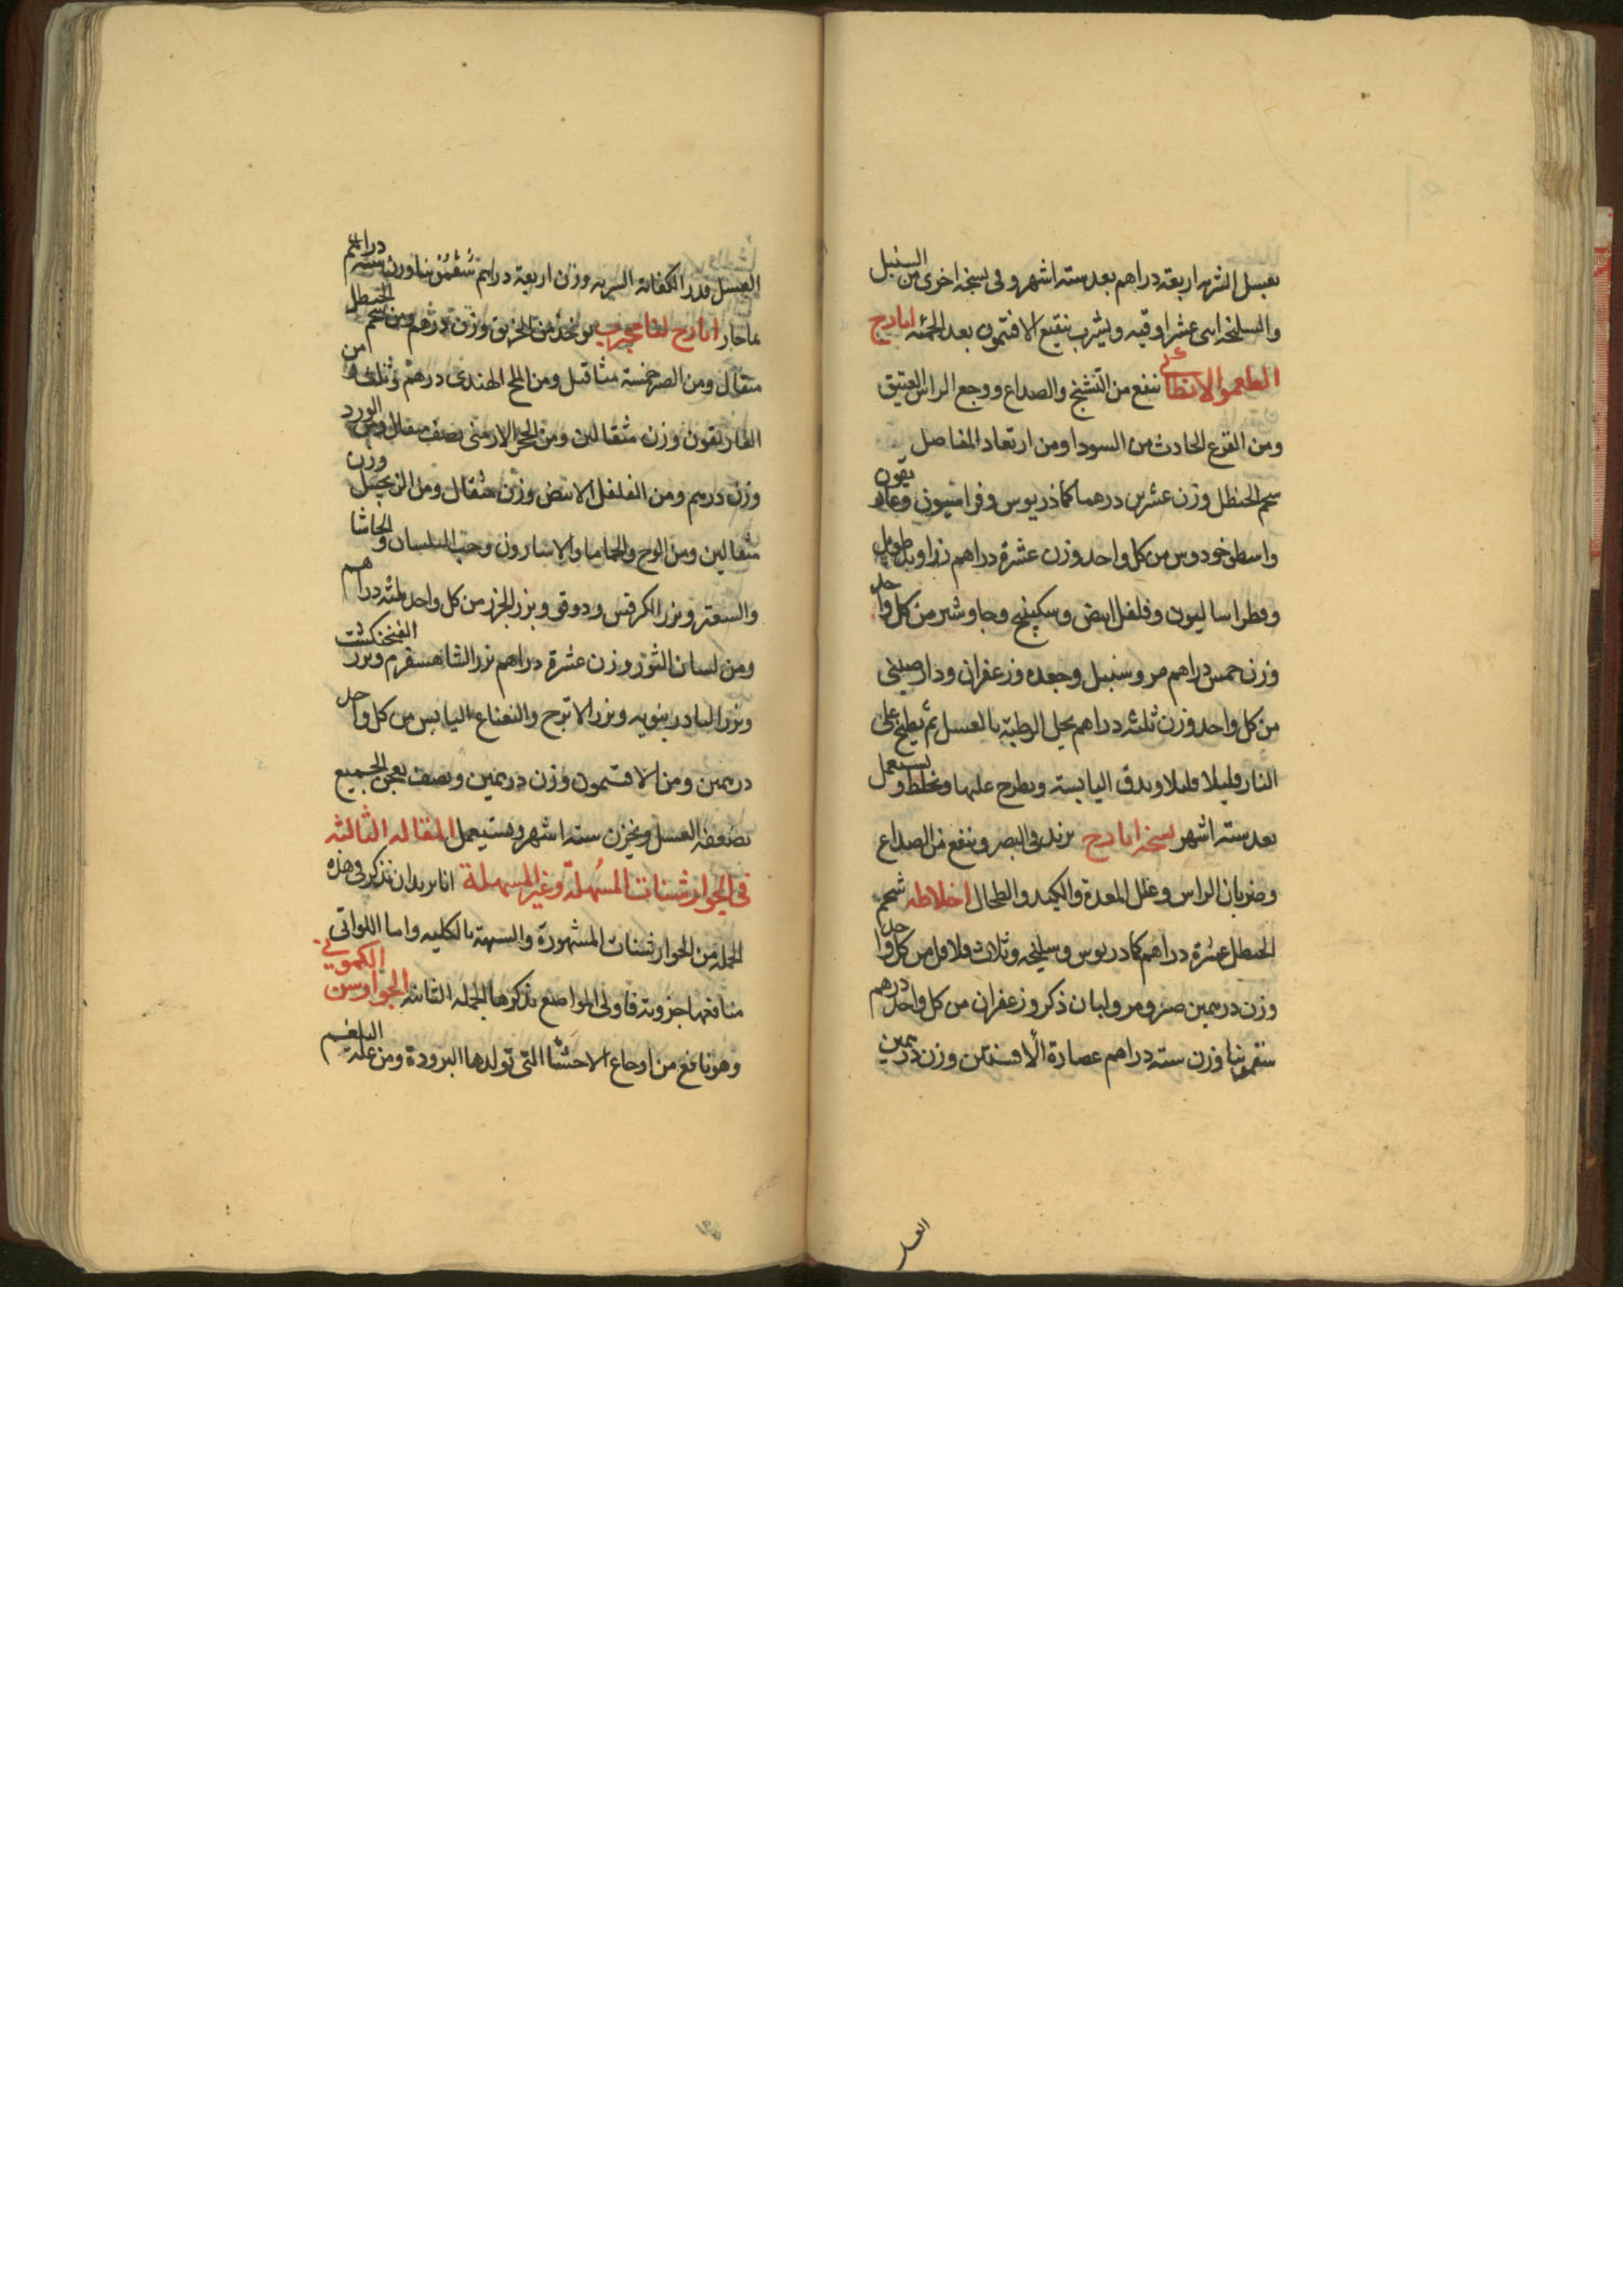 بعسل الشربه اربعة دراهم بعد سته اشهر وفى نسخه اخرى من السنبل
والسليخه اثنى عشر اوقيه ويشرب بنقيع الافتمون بعد الحمئه ايارج
انطائى ينفع من التشنج والصداع ووجع الراس العتيق
ومن الفزع الحادث من السودا ومن ارتعاد المفاصل
شحم الحنظل وزن عشرين درهما كماذريوس وفراسيون وغاريقون
واسطوخودوس من كل واحد وزن عشرة دراهم زراوند طويل
وفطراساليون وفلفل ابيض وسكبينج وجاوشير من كل واحد
وزن خمس دراهم مر وسنبل وجعده وزعفران ودارصينى
من كل واحد وزن ثلثه دراهم يحل الرطبة بالعسل ثم يطبخ على
النار قليلا قليلا ويدق اليابسته ويطرح عليها ويخلط ويستعمل
بعد سته اشهر نسخه ايارج يزيد فى البصر وينفع من الصداع
وضربان الراس وعلل المعدة والكبد والطحال اخلاطه شحم
الحنظل عشرة دراهم كمادريوس وسليخه وثلاث فلافل من كل واحد
وزن درهمين صبر ومر ولبان ذكر وزعفران من كل واحد درهم
سقمونيا وزن سته دراهم عصارة الافسنتين وزن درهمين
العسل
العسل قدر الكفاية الشربه وزن اربعة دراهم سقمونيا وزن سته دراهم
ماحار ايارج لنا مجرب يوخذ من الخربق وزن درهم ومن شحم الحنظل
مثقال ومن الصبر خمسة مثاقيل ومن الملح الهندى درهم وثلث ومن
الغاريقون وزن مثقالين ومن الحجر الارمنى نصف مثقال ومن الورد
وزن درهم ومن الفلفل الابيض وزن مثقال ومن الزنجبيل وزن
مثقالين ومن الوج والحاما والاسارون وحب البلسان والحاشا
والسعتر وبزر الكرفس ودوقو وبزر الجزر من كل واحد ثلثه دراهم
ومن لسان الثور وزن عشرة دراهم بزر الشاهسفرم وبزر الفنجنكشت
وبزر البادرنبويه وبزر الاترج والنعناع اليابس من كل واحد
درهمين ومن الافتيمون وزن درهمين ونصف يعجن الجميع
بضعفه العسل ويخزن سته اشهر ويستعمل المقاله الثالثه
فى الجوارشنات المسهلة وغير المسهلة انا نريد ان نذكر فى هذه
الجمله من الجوارشنات المشهورة والسهية بالكليه واما اللواتى
منافعها جزوية فاولى المواضع بذكرها الجمله الثانيه الجوارسن الكمونى
وهو نافع من اوجاع الاحشا التى تولدها البرودة ومن علة البلغم